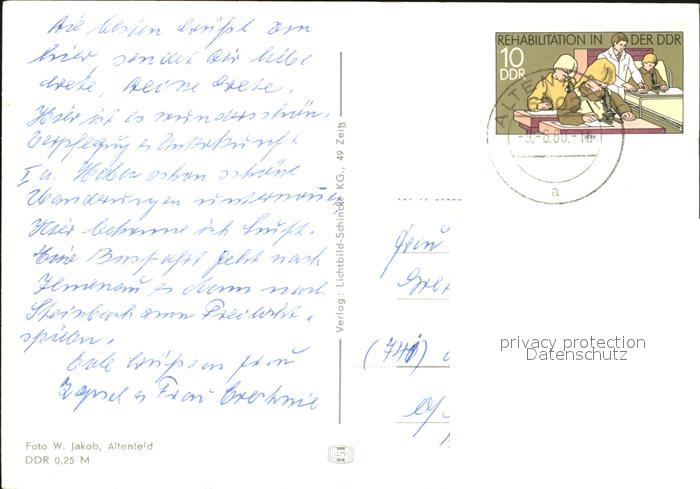 Die besten Grüße von
hier, sendet Dir liebe
Grete, Deine Grete.
Hier ist es wunderschön.
Verpflegung u. Unterkunft
I a. Haben schon schöne
Wanderungen unternommen,
Hier bekomme ich Luft.
Eine Busfahrt geht nach
Ilmenau u. dann nach
Steinbach zum Freilicht-
spielen.
Viele Grüße an Frau
u. Frau
Foto W. Jakob, Altenfeld
DDR 0,25 M
Verlag: Lichtbild-Schincke KG., 49 Zeitz
REHABILITATION IN DER DDR
10
DDR
ALTE
-5.-6.80.-18
a
Frau
(741)
privacy protection
Datenschutz